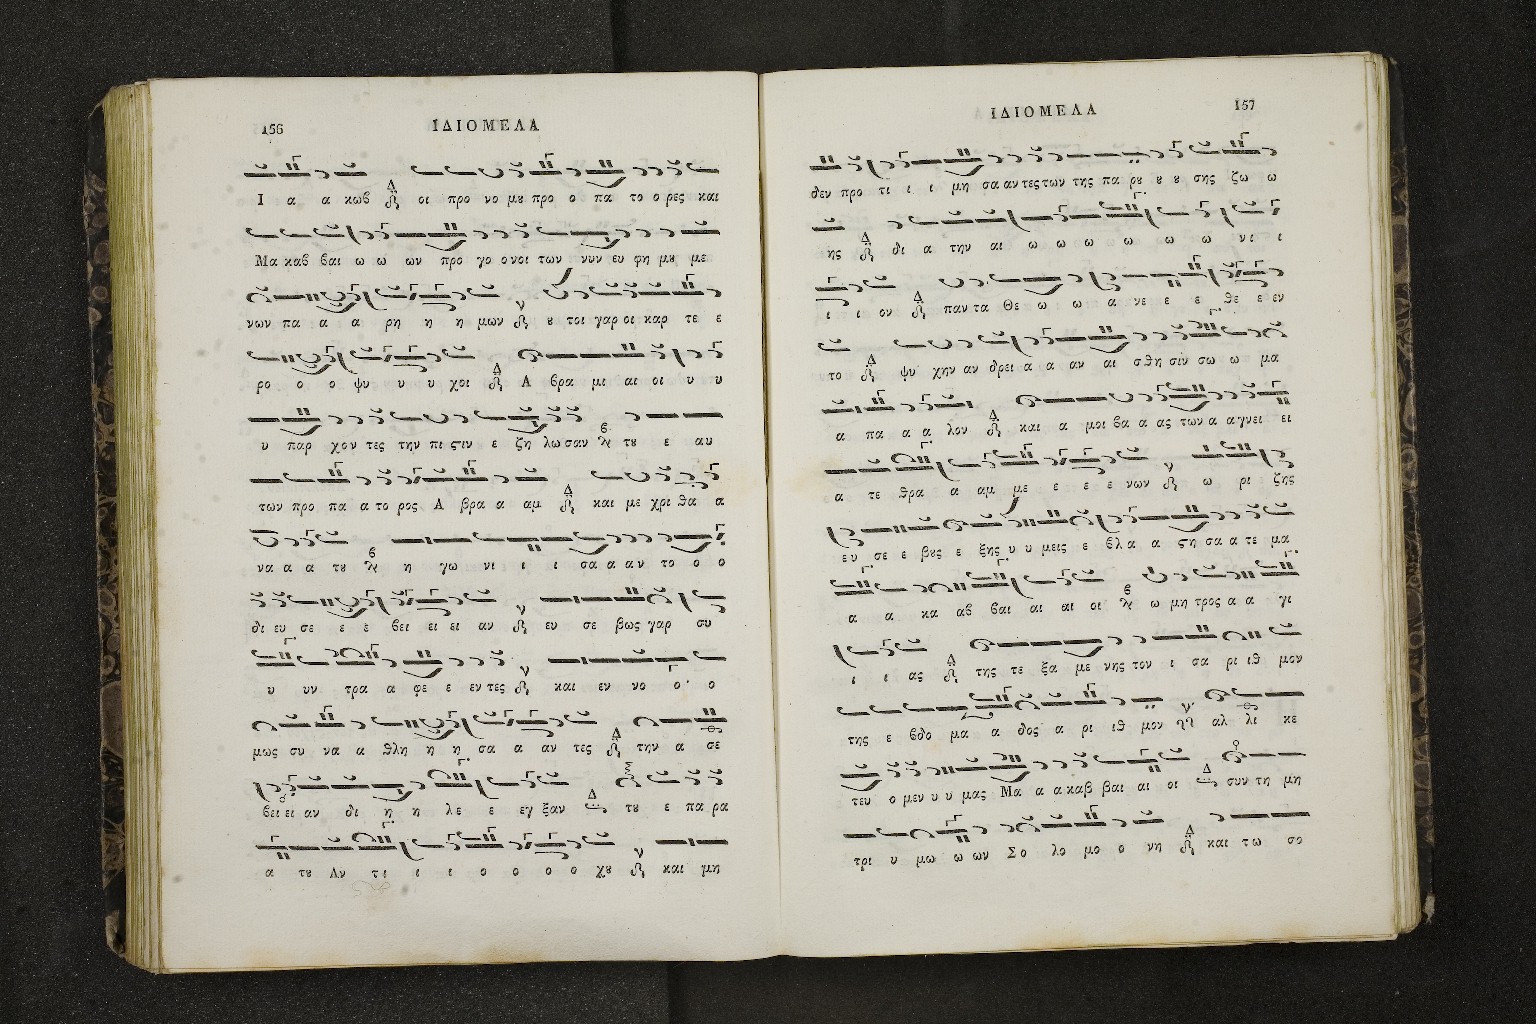 156 ΙΔΙΟΜΕΛΑ
Ι α α κωβ οι προ νο μȣ προ ο πα το ο ρες και
Μα καβ βαι ω ω ων προ γο ο νοι των νυν ευ φη μȣ με
νων πα α α ρη η η μων ȣ τοι γαρ οι καρ τε ε
ρο ο ο ψυ υ υ χοι Α βρα μι αι οι υ υ
υ παρ χον τες την πι ϛιν ε ζη λω σαν τȣ ε αυ
των προ πα α το ρος Α βρα α αμ και με χρι θα α
να α α τȣ η γω νι ι ι σα α αν το ο ο
δι ευ σε ε ε βει ει ει αν ευ σε βως γαρ συ
υ υν τρα α φε ε εν τες και εν νο ο ο
μως συ να α θλη η η σα α αν τες την α σε
βει ει αν δι η η λε ε εγ ξαν τȣ ε πα ρα
α τȣ Αν τι ι ι ο ο ο ο χȣ και μη
ΙΔΙΟΜΕΛΑ 157
δεν προ τι ι ι μη σα αν τες των της πα ρȣ ȣ ȣ σης ζω ω
ης δι α την αι ω ω ω ω ω ω νι ι
ι ι ον παν τα Θε ω ω α νε ε ε θε ε εν
το ψυ χην αν δρει α α αν αι σθη σιν σω ω μα
α πα α α λον και α μοι βα α ας των α α γνει ει
α τε θρα α αμ με ε ε ε νων ω ρι ζης
ευ σε ε βȣς ε ξης υ υ μεις ε βλα α ϛη σα α τε μα
α α κα αβ βαι αι αι οι ω μη τρος α α γι
ι ι ας της τε ξα με νης τον ι σα ρι ιθ μον
της ε βδο μα α δος α ρι ιθ μον αλ λι κε
τευ ο μεν υ υ μας Μα α α καβ βαι αι οι συν τη μη
τρι υ μω ω ων Σο λο μο ο νη και τω σο